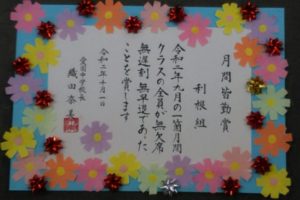 月間皆勤賞
利根組
令和二年九月の一箇月間
クラスの全員が無欠席
無遅刻無早退であった
ことを賞します
令和二年十月一日
中学校長
織田奈美